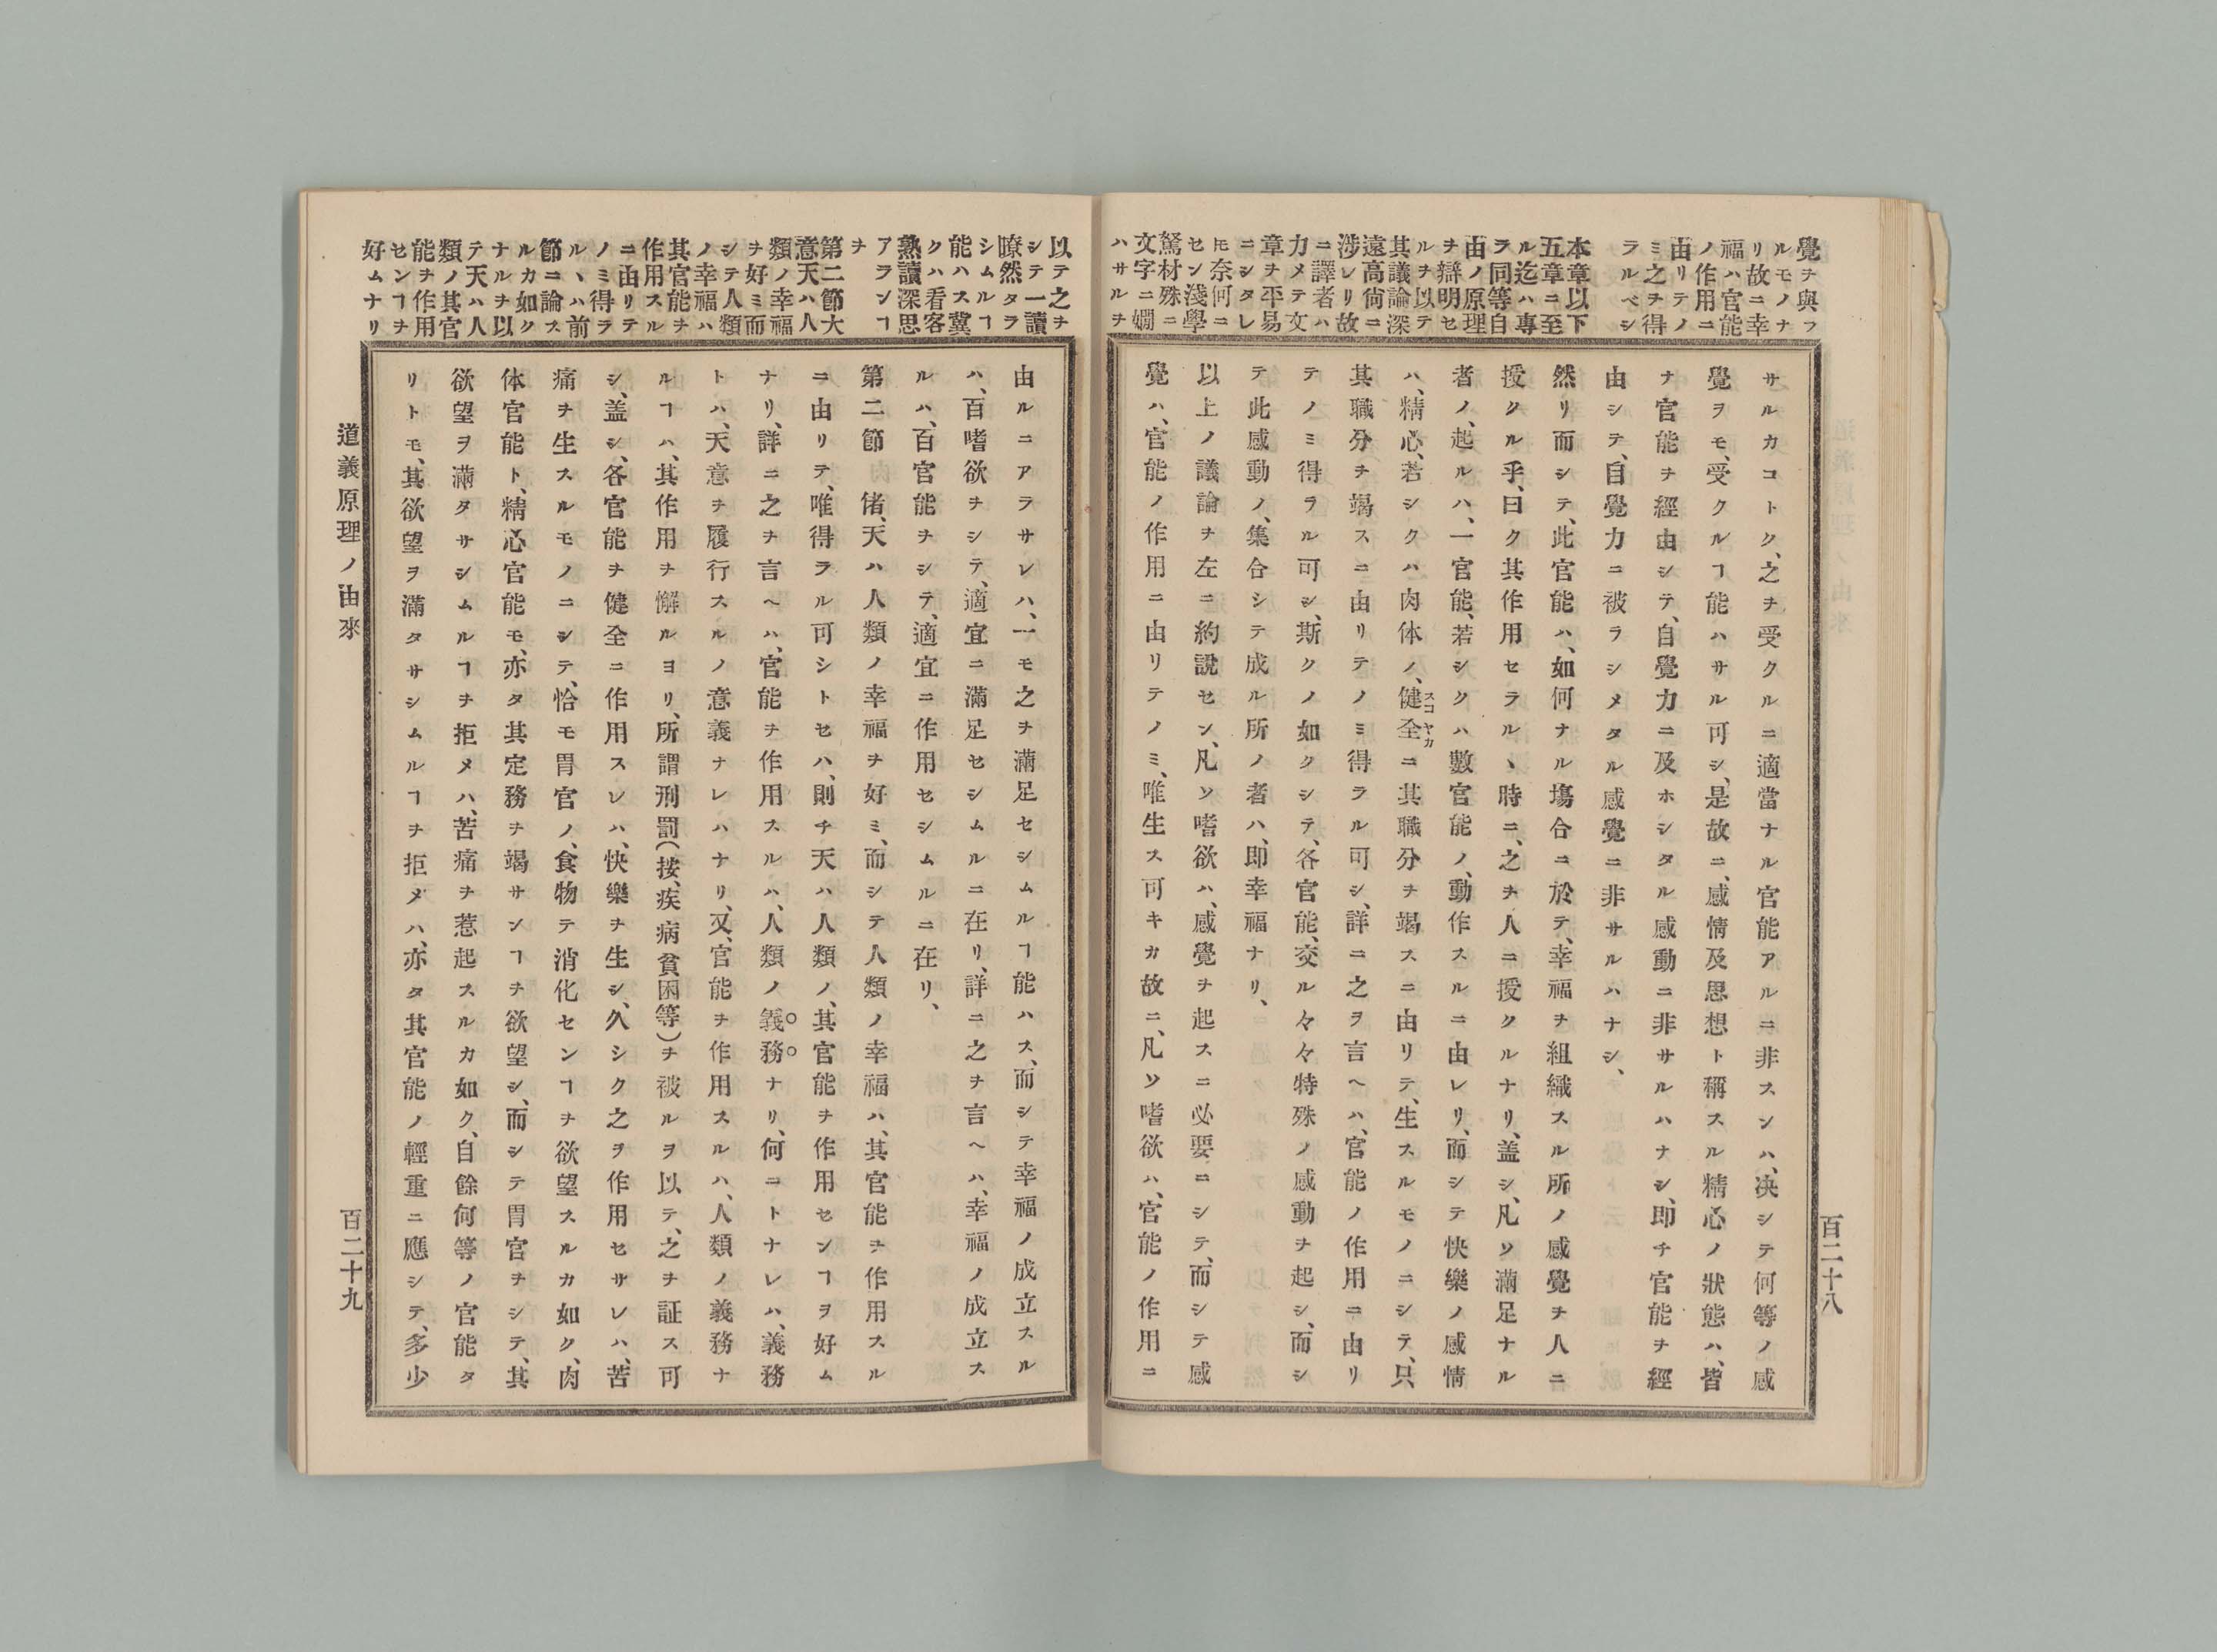 覺ヲ與フ
ルモノナ
リ故ニ幸
福ハ官能
ノ作用ニ
由リテノ
ミ之ヲ得
ラルベシ
本章以下
五章ニ至
ル迄ハ專
ラ同等自
由ノ原理
ヲ辯明セ
ルヲ以テ
其議論深
遠高尙ニ
涉レリ故
ニ譯者ハ
力メテ文
章ヲ平易
ニシタレ
𪜈奈何ニ
セン淺學
駑材殊ニ
文字ニ嫺
ハサルヲ
サルカコトク、之ヲ受クルニ適當ナル官能アルニ非スンハ、决シテ何等ノ感
覺ヲモ、受クルヿ能ハサル可シ、是故ニ、感情及思想ト稱スル精心ノ狀態ハ、皆
ナ官能ヲ經由シテ、自覺力ニ及ホシタル感動ニ非サルハナシ、即チ官能ヲ經
由シテ、自覺力ニ被ラシメタル感覺ニ非サルハナシ、
然リ而シテ、此官能ハ、如何ナル塲合ニ於テ、幸福ヲ組織スル所ノ感覺ヲ人ニ
授クル乎、曰ク其作用セラルヽ時ニ、之ヲ人ニ授クルナリ、盖シ、凡ソ滿足ナル
者ノ、起ルハ、一官能、若シクハ數官能ノ、動作スルニ由レリ、而シテ快樂ノ感情
ハ、精心、若シクハ肉体ノ、健全ニ其職分ヲ竭スニ由リテ、生スルモノニシテ、只
スコヤカ
其職分ヲ竭スニ由リテノミ得ラル可シ、詳ニ之ヲ言ヘハ、官能ノ作用ニ由リ
テノミ得ラル可シ、斯クノ如クシテ、各官能、交ル々々特殊ノ感動ヲ起シ、而シ
テ此感動ノ、集合シテ成ル所ノ者ハ、即幸福ナリ、
以上ノ議論ヲ左ニ約說セン、凡ソ嗜欲ハ、感覺ヲ起スニ必要ニシテ、而シテ感
覺ハ、官能ノ作用ニ由リテノミ、唯生ス可キカ故ニ、凡ソ嗜欲ハ、官能ノ作用ニ
百二十八
以テ之ヲ
シテ一讀
瞭然タラ
シムルヿ
能ハス冀
クハ看客
熟讀深思
アランヿ
ヲ
第二節大
意天ハ人
類ノ幸福
ヲ好ミ而
シテ人類
ノ幸福ハ
其官能ヲ
作用スル
ニ由リテ
ノミ得ラ
ルヽハ前
節ニ論ス
ルカ如ク
ナルヲ以
テ天ハ人
類ノ其官
能ヲ作用
センヿヲ
好ムナリ
由ルニアラサレハ、一モ之ヲ滿足セシムルヿ能ハス、而シテ幸福ノ成立スル
ハ、百嗜欲ヲシテ、適宜ニ滿足セシムルニ在リ、詳ニ之ヲ言ヘハ、幸福ノ成立ス
ルハ、百官能ヲシテ、適宜ニ作用セシムルニ在リ、
第二節 偖、天ハ人類ノ幸福ヲ好ミ、而シテ人類ノ幸福ハ、其官能ヲ作用スル
ニ由リテ、唯得ラル可シトセハ、則チ天ハ人類ノ、其官能ヲ作用センヿヲ好ム
ナリ、詳ニ之ヲ言ヘハ、官能ヲ作用スルハ、人類ノ義務ナリ、何ニトナレハ、義務
トハ、天意ヲ履行スルノ意義ナレハナリ、又、官能ヲ作用スルハ、人類ノ義務ナ
ルヿハ、其作用ヲ懈ルヨリ、所謂刑罰（按、疾病貧困等）ヲ被ルヲ以テ、之ヲ証ス可
シ、盖シ、各官能ヲ健全ニ作用スレハ、快樂ヲ生シ、久シク之ヲ作用セサレハ、苦
痛ヲ生スルモノニシテ、恰モ胃官ノ、食物テ消化センヿヲ欲望スルカ如ク、肉
体官能ト、精心官能モ、亦タ其定務ヲ竭サンヿヲ欲望シ、而シテ胃官ヲシテ、其
欲望ヲ滿タサシムルヿヲ拒メハ、苦痛ヲ惹起スルカ如ク、自餘何等ノ官能タ
リトモ、其欲望ヲ滿タサシムルヿヲ拒メハ、亦タ其官能ノ輕重ニ應シテ、多少
道義原理ノ由來
百二十九